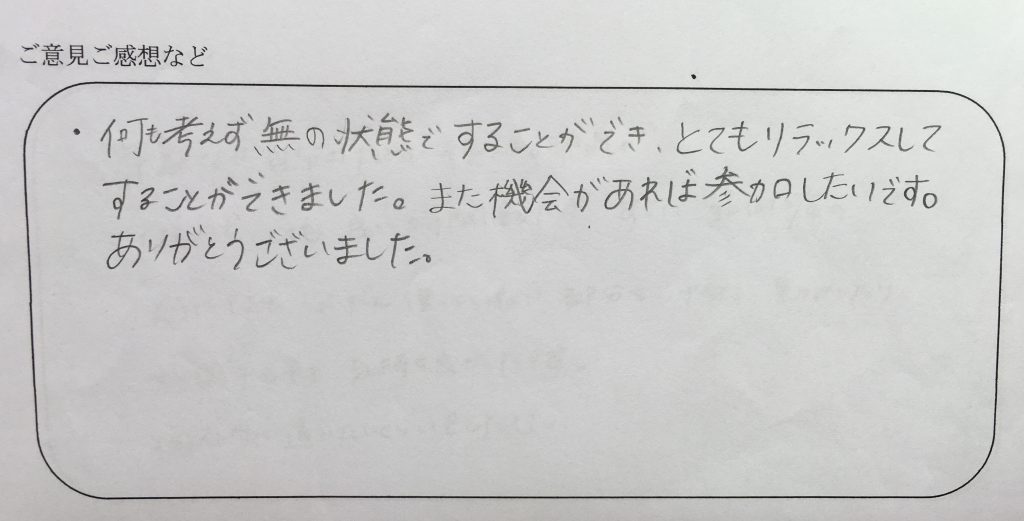 ご意見ご感想など
・何も考えず、無の状態で することができ、とてもリラックスして
することができました。また機会があれば参加したいです。
ありがとうございました。